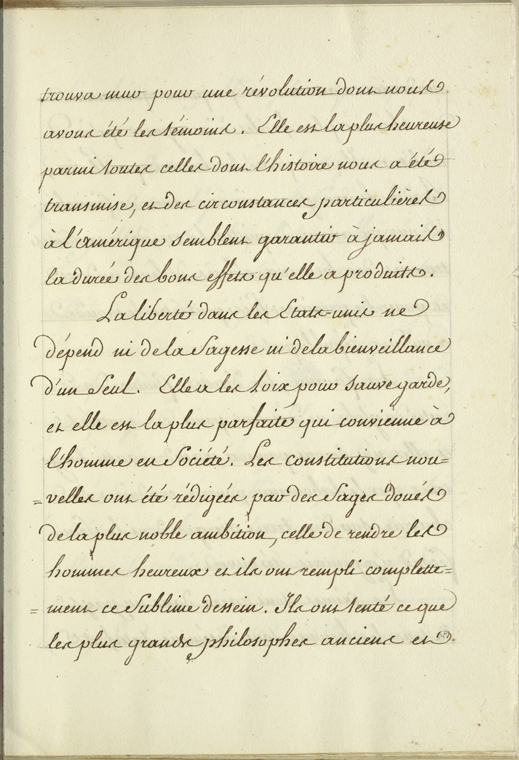 trouva mur pour une révolution dont nous
avons été les témoins. Elle est la plus heureuse
parmi toutes celles dont l'histoire nous a été
transmise, et des circonstances particulières
à l'amérique semblent garantir à jamais
la durée des bons effets qu'elle a produits.
La liberté dans les Etats-unis ne
dépend ni de la Sagesse ni de la bienveillance
d'un Seul. Elle a les loix pour sauvegarde,
et elle est la plus parfaite qui convienne à
l'homme en Société. Les constitutions nou=
=velles ont été rédigées par des Sages doués
de la plus noble ambition, celle de rendre les
hommes heureux et ils ont rempli complette=
=ment ce Sublime dessein. Ils ont tenté ce que
les plus grands philosophes anciens et